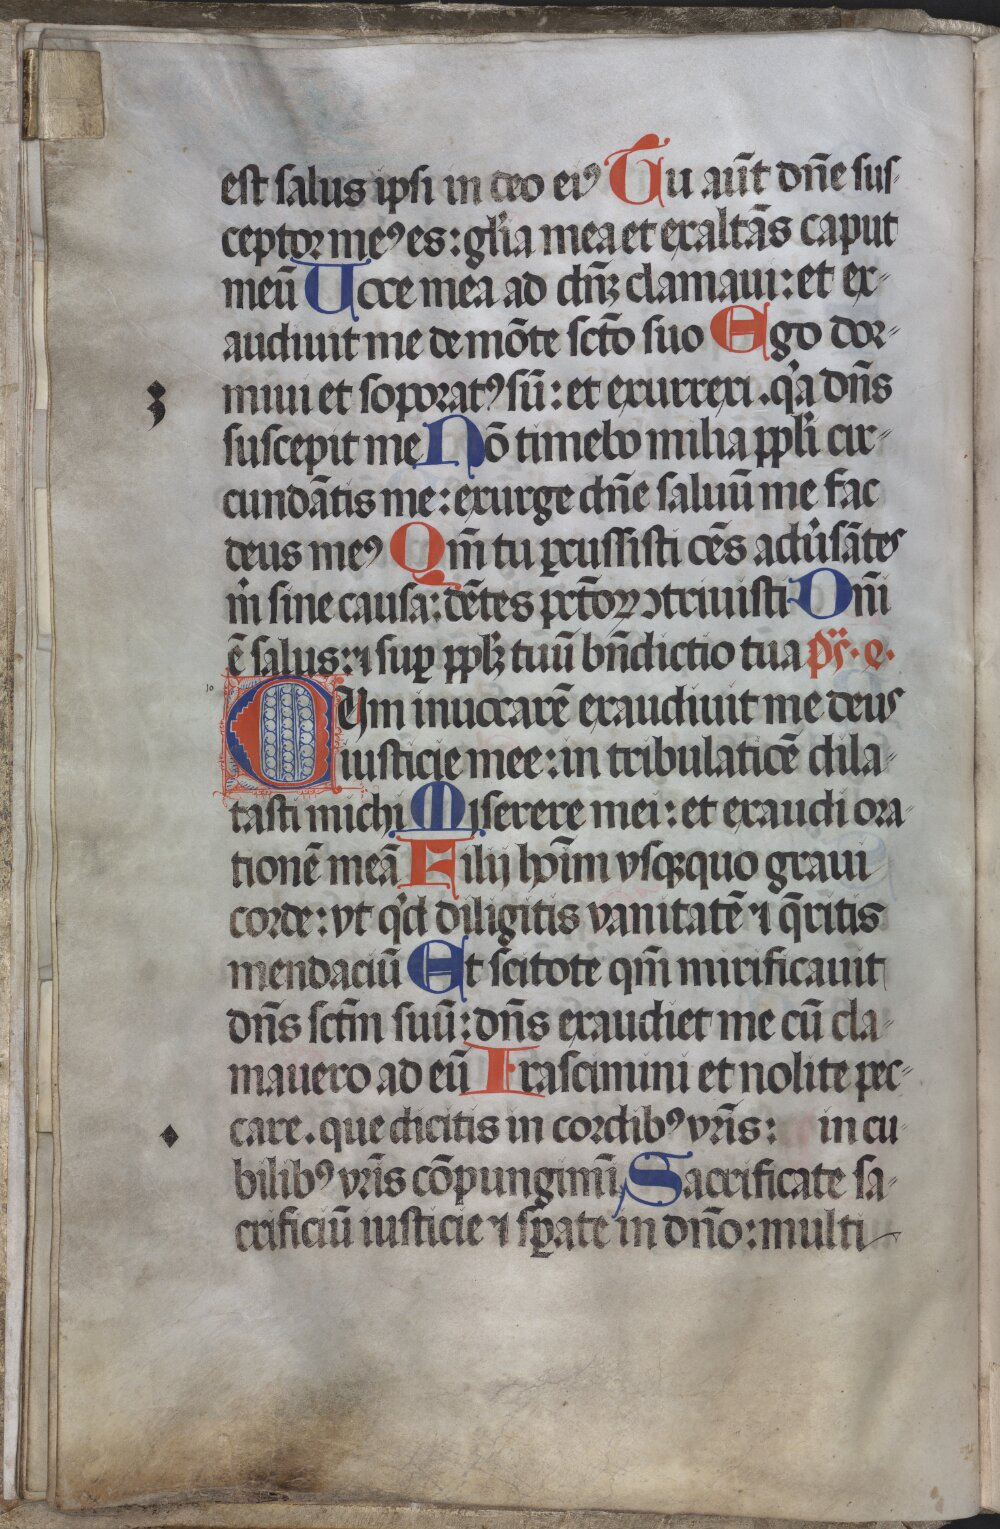 est salus ipsi in deo eiꝰ Tu aūt dn̄e sus-
ceptor meꝰ es: gl̄ia mea et exaltās caput
meū Uoce mea ad dn̄ꝫ clamaui: et ex-
audiuit me de mōte sct̄o suo Ego dor-
miui et soporatꝰ sū: et exurrexi. qͥa dn̄s
suscepit me Nō timebo milia ppl̄i cir-
cundātis me: exurge dn̄e saluū me fac
deus meꝰ Qm̄ tu ꝑcussisti oēs adu̾sātes
m̄ sine causa: dētes pct̄oꝝ ꝯtriuisti Dn̄i
ē salus: ⁊ suꝑ ppl̄ꝫ tuū bn̄dictio tua p̄s. e.
CUm inuocarē exaudiuit me deus
iusticie mee: in tribulatiōe dila-
tasti michi Miserere mei: et exaudi ora-
tionē meā Filij hoīm vsqꝫquo graui
corde: vt qͥd diligitis vanitatē ⁊ q̄ritis
mendaciū Et sc̄itote qm̄ mirificauit
dn̄s sct̄m suū: dn̄s exaudiet me cū cla-
mauero ad eū Irascimini et nolite pec-
care. que dicitis in cordibꝰ vr̄is: in cu-
bilibꝰ vr̄is cōpungimī Sacrificate sa-
crificiū iusticie ⁊ sꝑate in dn̄o: multi
10